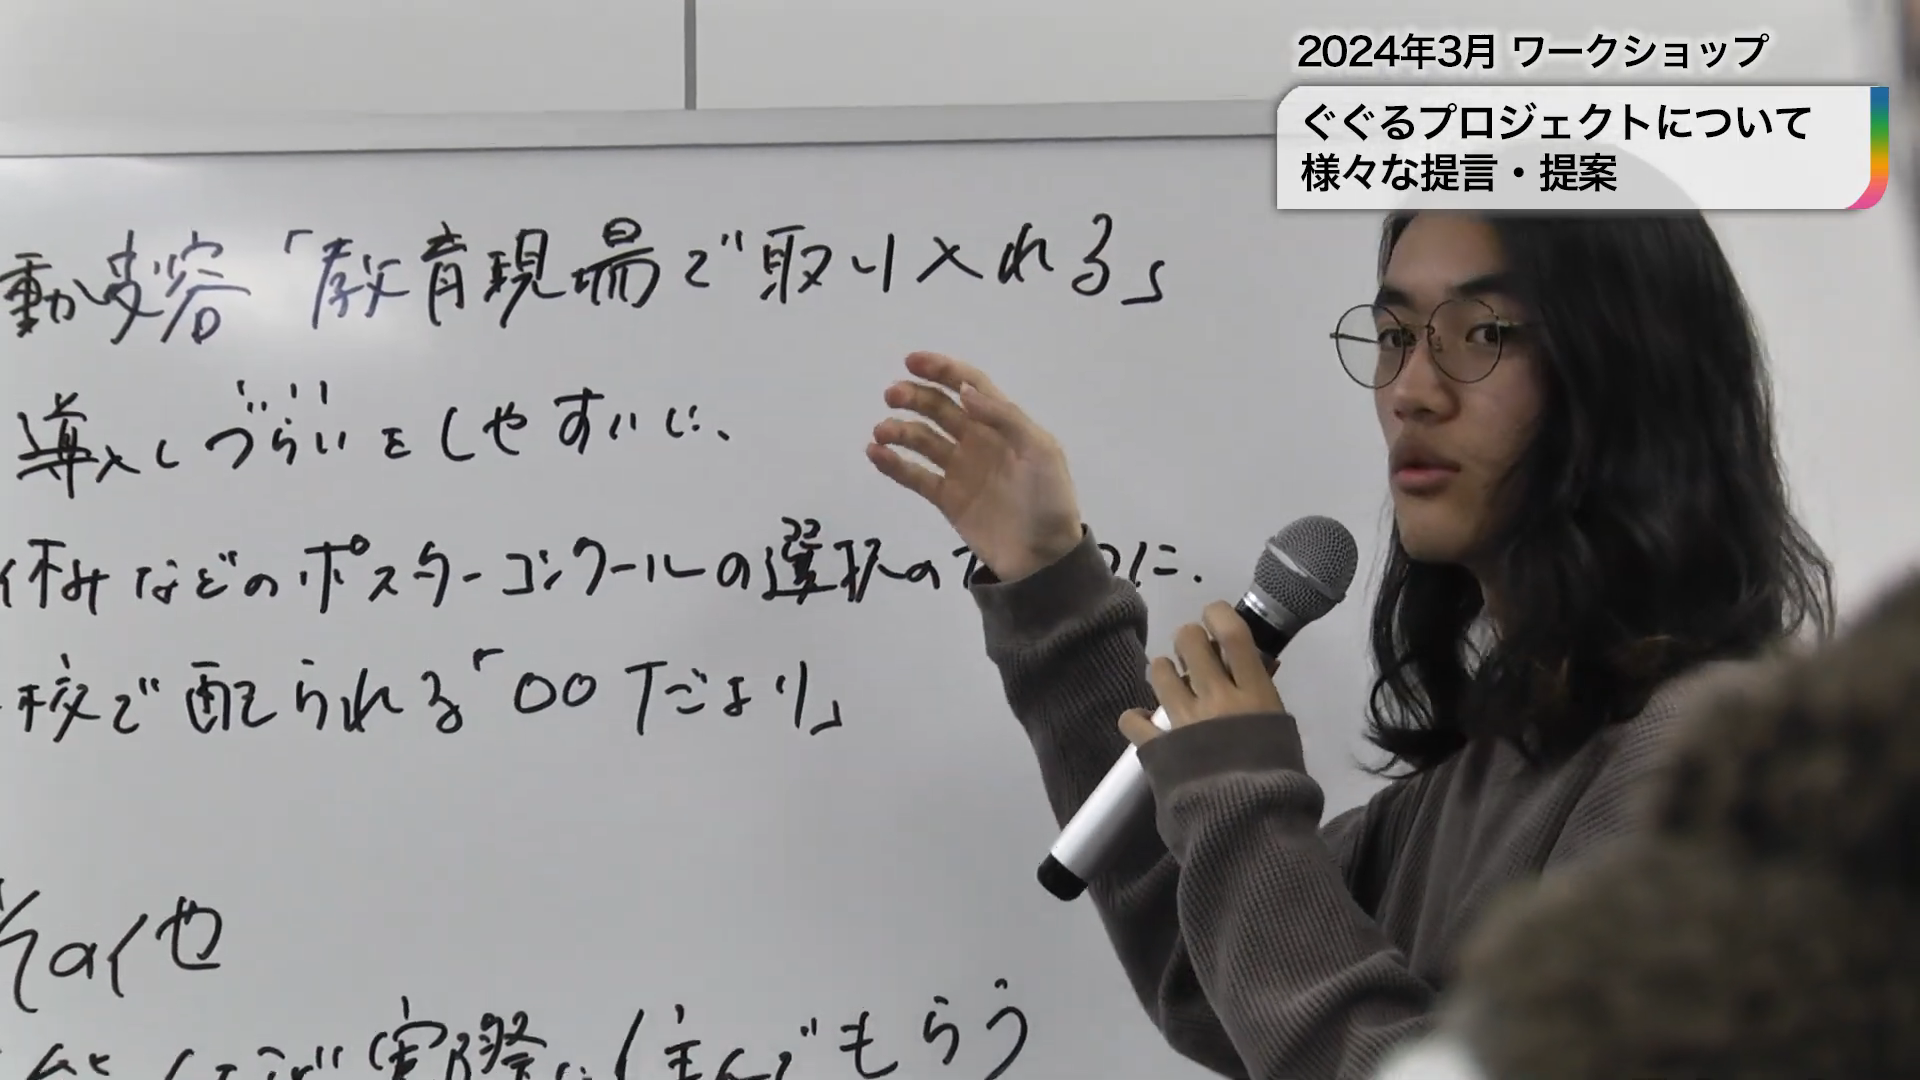 2024年3月 ワークショップ
ぐぐるプロジェクトについて
様々な提言・提案
動変容「教育現場で取り入れる」
導入しづらいをしやすいに、
休みなどのポスターコンクールの選択の
校で配られる「○○だより」
その他
実際に住んでもらう